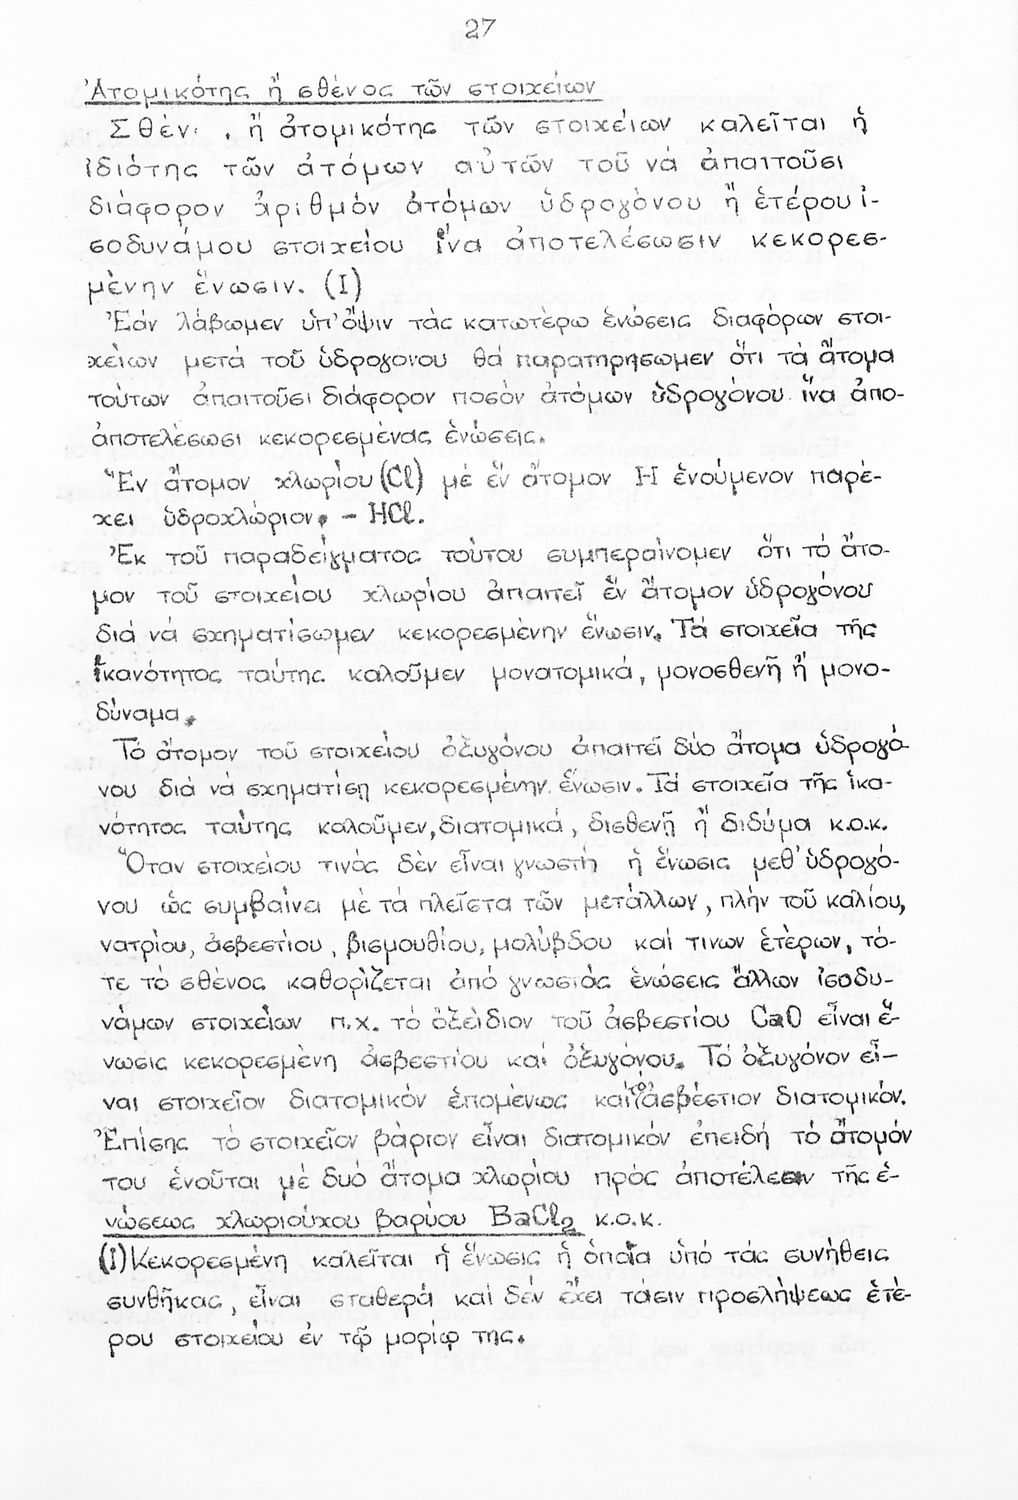 27
Ἀτομικότης ἤ σθένος τῶν στοιχείων
Σθέν. , ἤ ἀτομικότης τῶν στοιχείων καλεῖται ἡ
ἰδιότης τῶν ἀτόμων αὐτῶν τοῦ νά ἀπαιτοῦσι
διάφορον ἀριθμόν ἀτόμων ὑδρογόνου ἤ ἑτέρου ἰ-
σοδυνάμου στοιχείου ἵνα ἀποτελέσωσιν κεκορεσ-
μένην ἕνωσιν. (I)
Ἐάν λάβωμεν ὑπ' ὄψιν τάς κατωτέρω ἑνώσεις διαφόρων στοι-
χείων μετά τοῦ ὑδρογόνου θά παρατηρήσωμεν ὅτι τά ἄτομα
τούτων ἀπαιτοῦσι διάφορον ποσόν ἀτόμων ὑδρογόνου ἵνα ἀπο-
ἀποτελέσωσι κεκορεσμένας ἑνώσεις.
Ἕν ἄτομον χλωρίου (Cl) μέ ἕν ἄτομον H ἑνούμενον παρέ-
χει ὑδροχλώριον. - HCl.
Ἐκ τοῦ παραδείγματος τούτου συμπεραίνομεν ὅτι τό ἄτο-
μον τοῦ στοιχείου χλωρίου ἀπαιτεῖ ἕν ἄτομον ὑδρογόνου
διά νά σχηματίσωμεν κεκορεσμένην ἕνωσιν. Τά στοιχεῖα τῆς
ἱκανότητος ταύτης καλοῦμεν μονατομικά, μονοσθενῆ ἤ μονο-
δύναμα.
Τό ἄτομον τοῦ στοιχείου ὀξυγόνου ἀπαιτεῖ δύο ἄτομα ὑδρογό-
νου διά νά σχηματίσῃ κεκορεσμένην ἕνωσιν. Τά στοιχεῖα τῆς ἱκα-
νότητος ταύτης καλοῦμεν, διατομικά, δισθενῆ ἤ διδύμα κ.ο.κ.
Ὅταν στοιχείου τινός δέν εἶναι γνωστή ἡ ἕνωσις μεθ' ὑδρογό-
νου ὡς συμβαίνει μέ τά πλεῖστα τῶν μετάλλων, πλήν τοῦ καλίου,
νατρίου, ἀσβεστίου, βισμουθίου, μολύβδου καί τινων ἑτέρων, τό-
τε τό σθένος καθορίζεται ἀπό γνωστάς ἑνώσεις ἄλλων ἰσοδυ-
νάμων στοιχείων π.χ. τό ὀξείδιον τοῦ ἀσβεστίου CaO εἶναι ἕ-
νωσις κεκορεσμένη ἀσβεστίου καί ὀξυγόνου. Τό ὀξυγόνον εἶ-
ναι στοιχεῖον διατομικόν ἑπομένως καί τό ἀσβέστιον διατομικόν.
Ἐπίσης τό στοιχεῖον βάριον εἶναι διατομικόν ἐπειδή τό ἄτομόν
του ἑνοῦται μέ δυό ἄτομα χλωρίου πρός ἀποτέλεσιν τῆς ἑ-
νώσεως χλωριούχου βαρύου BaCl₂ κ.ο.κ.
(I) Κεκορεσμένη καλεῖται ἡ ἕνωσις ἡ ὁποία ὑπό τάς συνήθεις
συνθῆκας, εἶναι σταθερά καί δέν ἔχει τάσιν προσλήψεως ἑτέ-
ρου στοιχείου ἐν τῷ μορίῳ της.